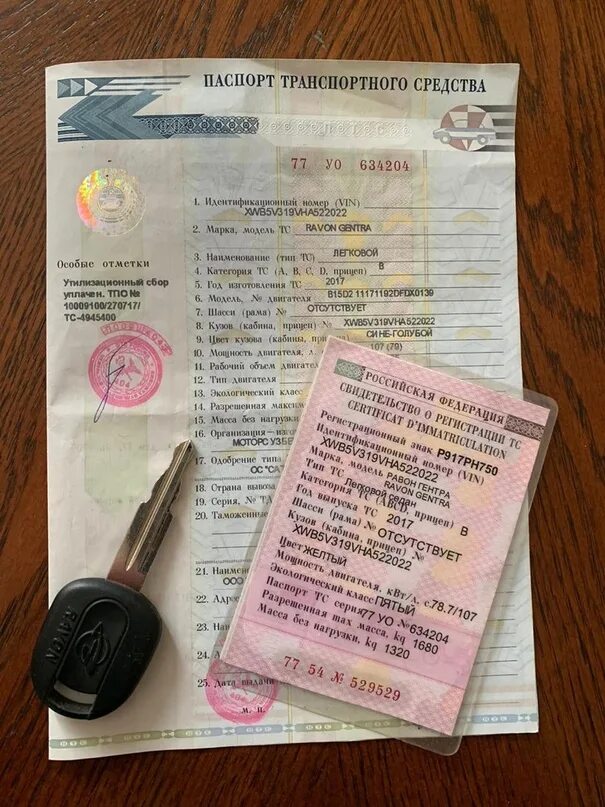 ПАСПОРТ ТРАНСПОРТНОГО СРЕДСТВА
77 УО 634204
1. Идентификационный номер (VIN)
XWB5V319VHA522022
2. Марка, модель ТС RAVON GENTRA
3. Наименование (тип ТС) ЛЕГКОВОЙ
4. Категория ТС (А, В, С, D, прицеп) В
5. Год изготовления ТС 2017
6. Модель, № двигателя B15D2 11171192DFDX0139
7. Шасси (рама) № ОТСУТСТВУЕТ
8. Кузов (кабина, прицеп) № XWB5V319VHA522022
9. Цвет кузова (кабины, СИНЕ-ГОЛУБОЙ
10. Мощность двигателя, л. 107 (79)
11. Рабочий объем
12. Тип двигателя
13. Экологический
14. Разрешенная
15. Масса без нагрузки
16.
МОТОРС
17. Одобрение типа
ОС
18. Страна вывоза
19. Серия, №
20. Таможенные
21.
ООО
22.
23.
24.
25. Дата выдачи
М. П.
Особые отметки
Утилизационный сбор
уплачен. ТПО №
10009100/270717/
ТС-4945400
RAVON
РОССИЙСКАЯ ФЕДЕРАЦИЯ
СВИДЕТЕЛЬСТВО О РЕГИСТРАЦИИ ТС
CERTIFICAT D'IMMATRICULATION
Регистрационный знак Р917РН750
Идентификационный номер (VIN)
XWB5V319VHA522022
Марка, модель РАВОН ГЕНТРА
RAVON GENTRA
Тип ТС Легковой седан
Категория ТС (ABCD, прицеп) B
Год выпуска ТС 2017
Шасси (рама) № ОТСУТСТВУЕТ
Кузов (кабина, прицеп) №
XWB5V319VHA522022
Цвет ЖЕЛТЫЙ
Мощность двигателя, кВт/л. с. 78.7/107
Экологический класс ПЯТЫЙ
Паспорт ТС серия 77 УО № 634204
Разрешенная max масса, kg 1680
Масса без нагрузки, kg 1320
77 54 № 529529